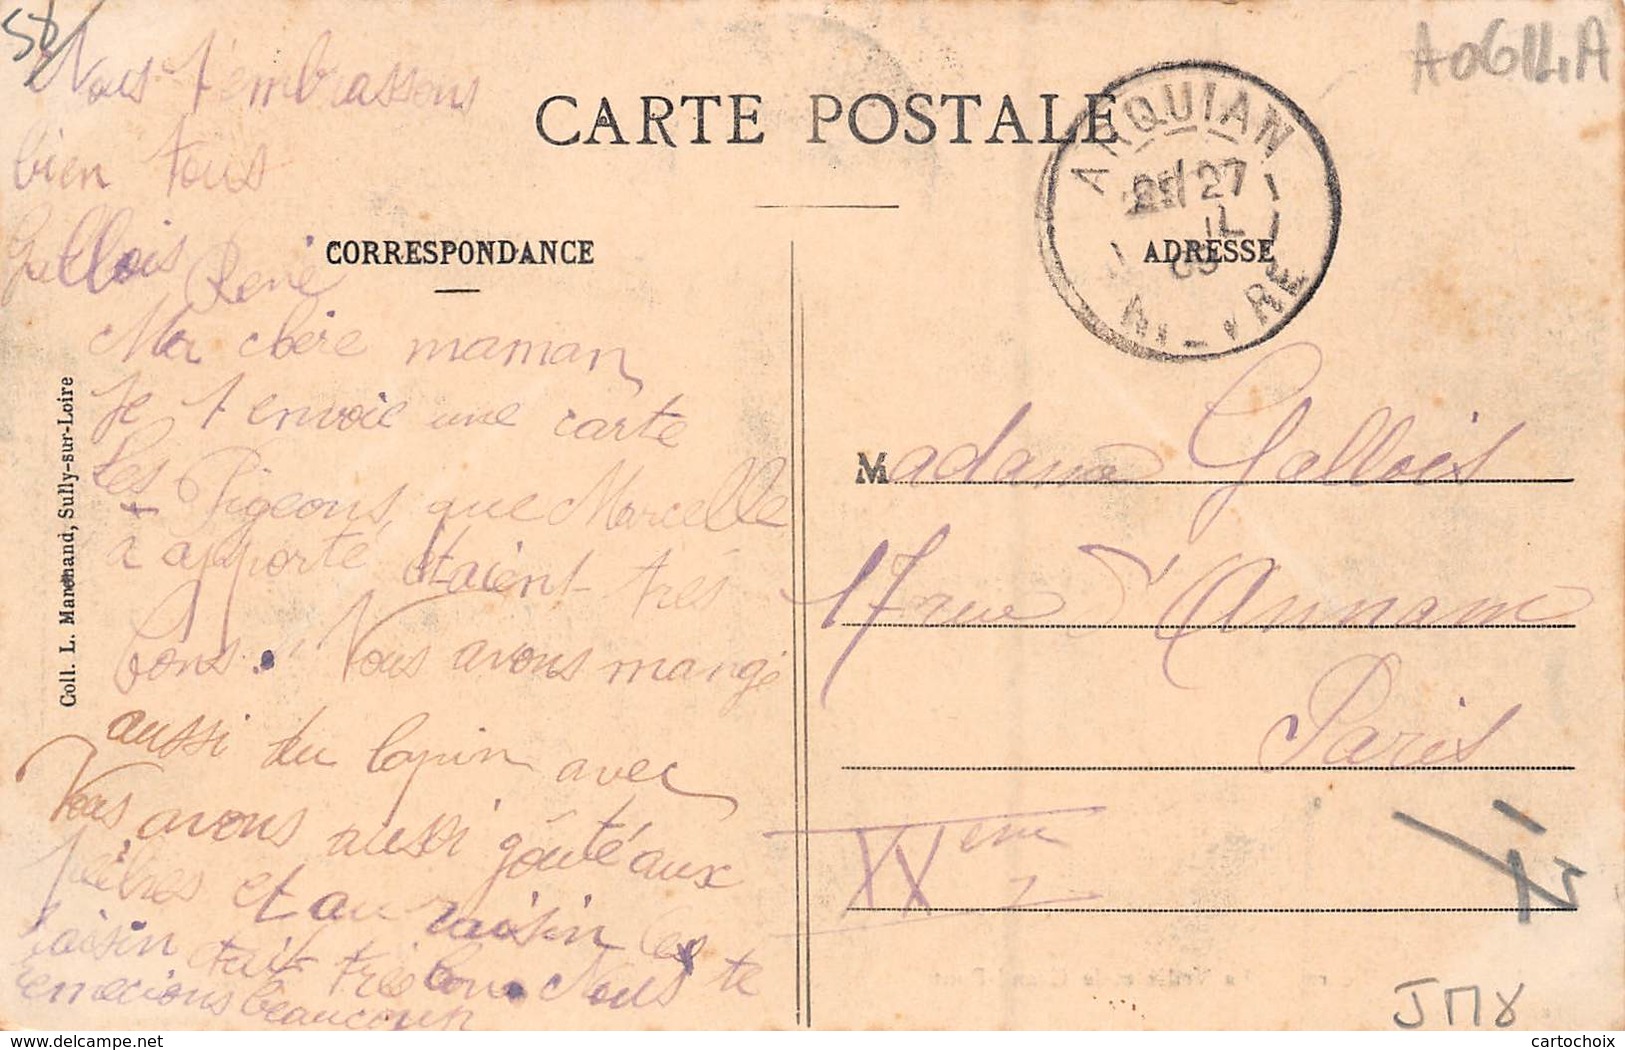 58
A0614A
Nous t'embrassons
bien tous
Gallois René
CARTE POSTALE
CORRESPONDANCE
ADRESSE
ARQUIAN
27
NIÈVRE
Ma chère maman
je t envoie une carte
Les Pigeons que Marcelle
a apporté étaient très
bons. Nous avons mangé
aussi du lapin avec
Nous avons aussi goûté aux
et au raisin les
raisin était très bon. Nous te
remecions beaucoup
Coll. L. Marchand, Sully-sur-Loire
Madame Gallois
17 rue d'Annam
Paris
XXem
JM8
cartochoix